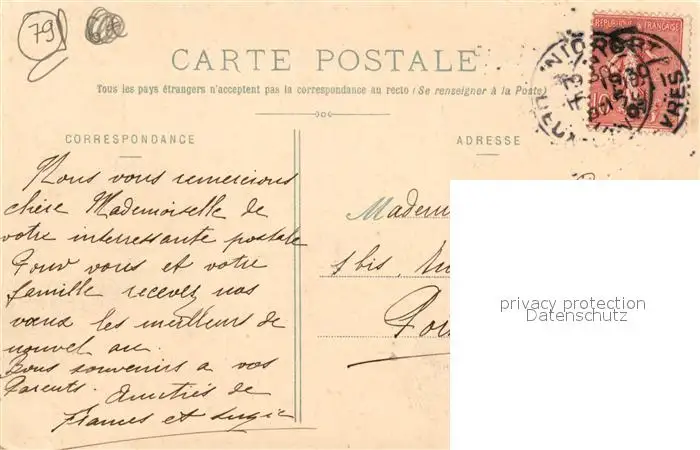 79
CARTE POSTALE
Tous les pays étrangers n'acceptent pas la correspondance au recto (Se renseigner à la Poste)
REPUBLIQUE FRANÇAISE
CORRESPONDANCE
ADRESSE
Nous vous remercions
chère Mademoiselle de
votre interressante postale
Pour vous et votre
famille recevez nos
vœux les meilleurs de
nouvel an.
Bons souvenirs a vos
Parents. Amitiés de
et
Madem
1 bis,
privacy protection
Datenschutz